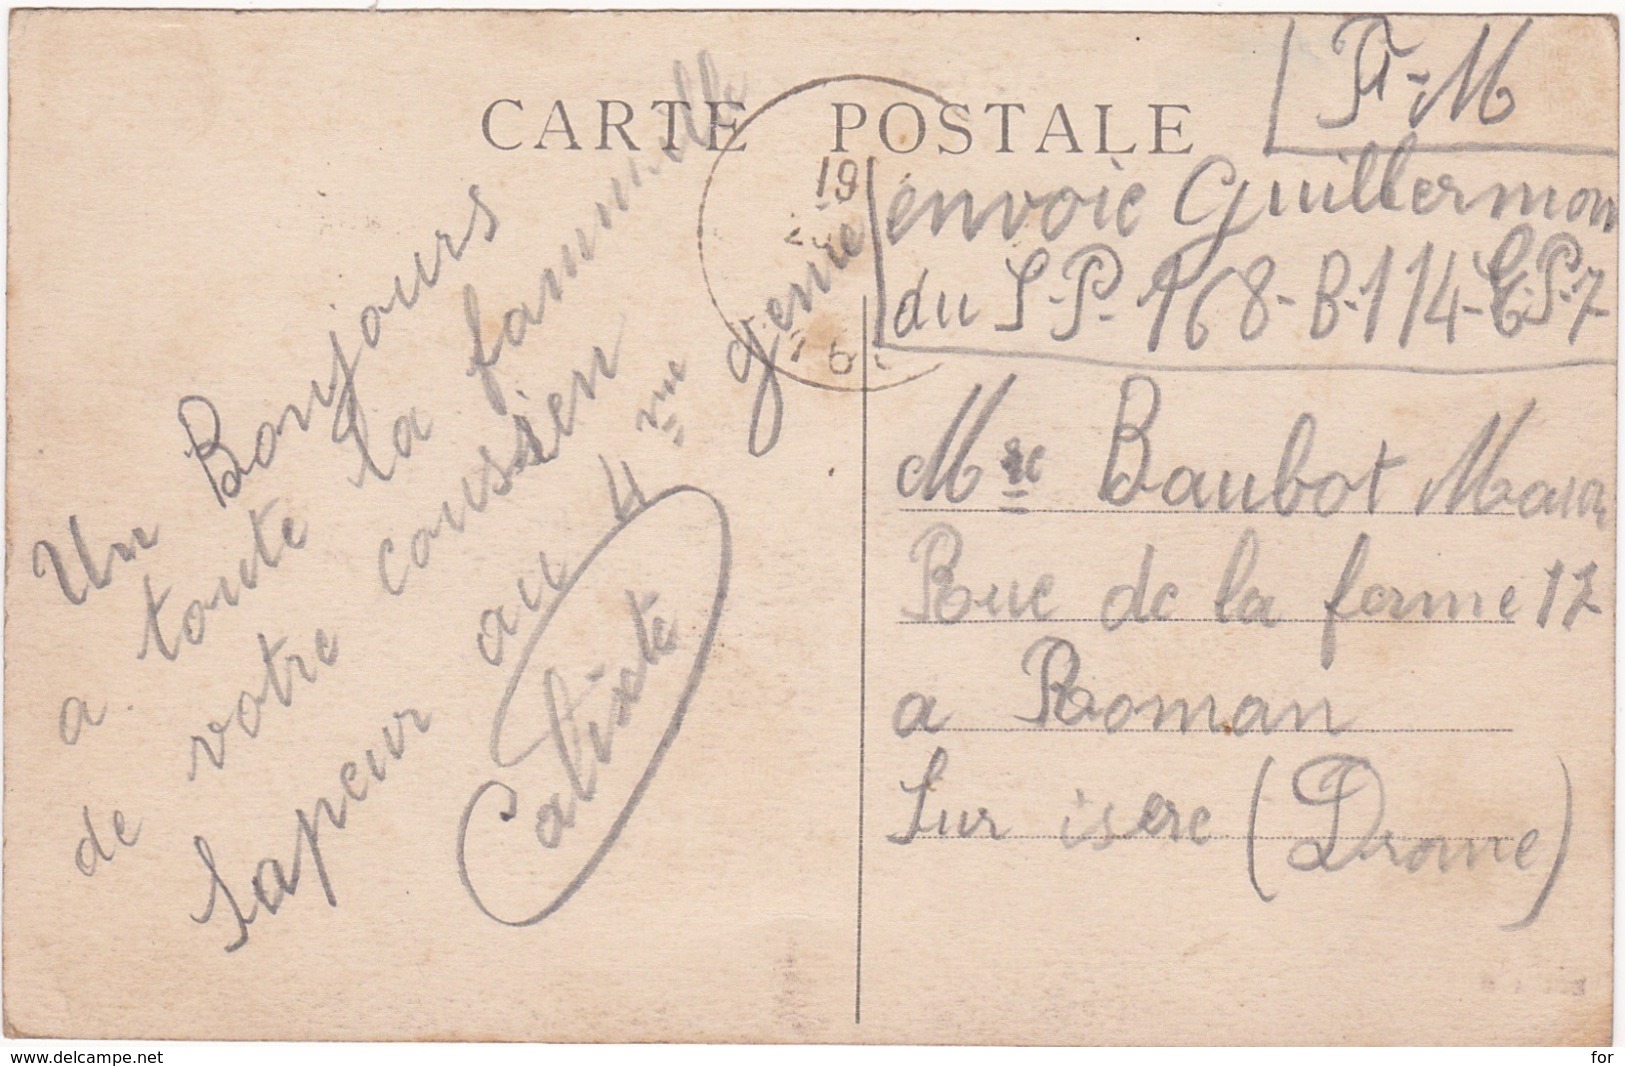 CARTE POSTALE
F-M
envoie Guillermon
du S-P. 168-B-114-C.P.7
Un Bonjours
a toute la fammille
de votre coussien
Sapeur au 4me genie
Calixte
19
6
Mre Baubot
Rue de la ferme 17
a Roman
Sur isere (Drome)
www.delcampe.net
for